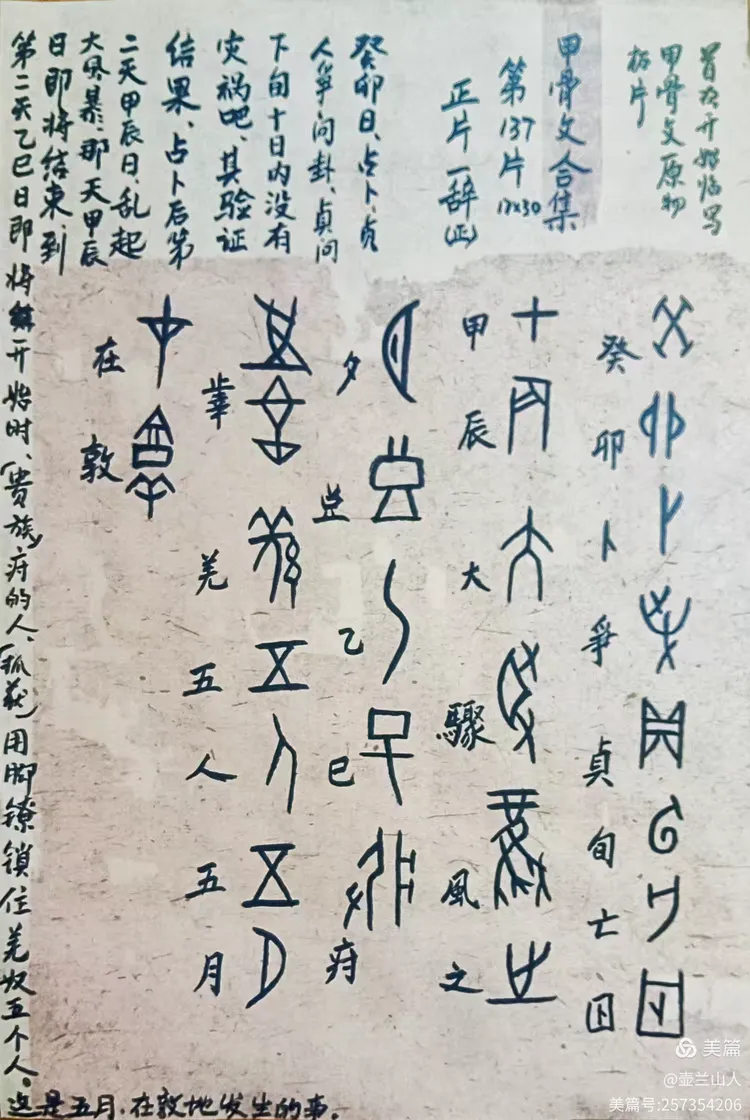 首次开始临写
甲骨文原物
拓片
甲骨文合集
第137片 17x30
正片一辞(正)
癸卯日、占卜、贞
人争问卦、贞问
下旬十日内没有
灾祸吧、其验证
结果、占卜后第
二天甲辰日、乱起
大风暴、那天甲辰
日即将结束、到
第二天乙巳日即将开始时、贵族疛的人、抓获用脚镣锁住羌奴五个人。
这是五月、在敦地发生的事。
癸卯卜爭貞旬亡囚
甲辰大驟風之
夕㞷乙巳疛
羌五人五月
在敦
美篇
@壶兰山人
美篇号:257354206